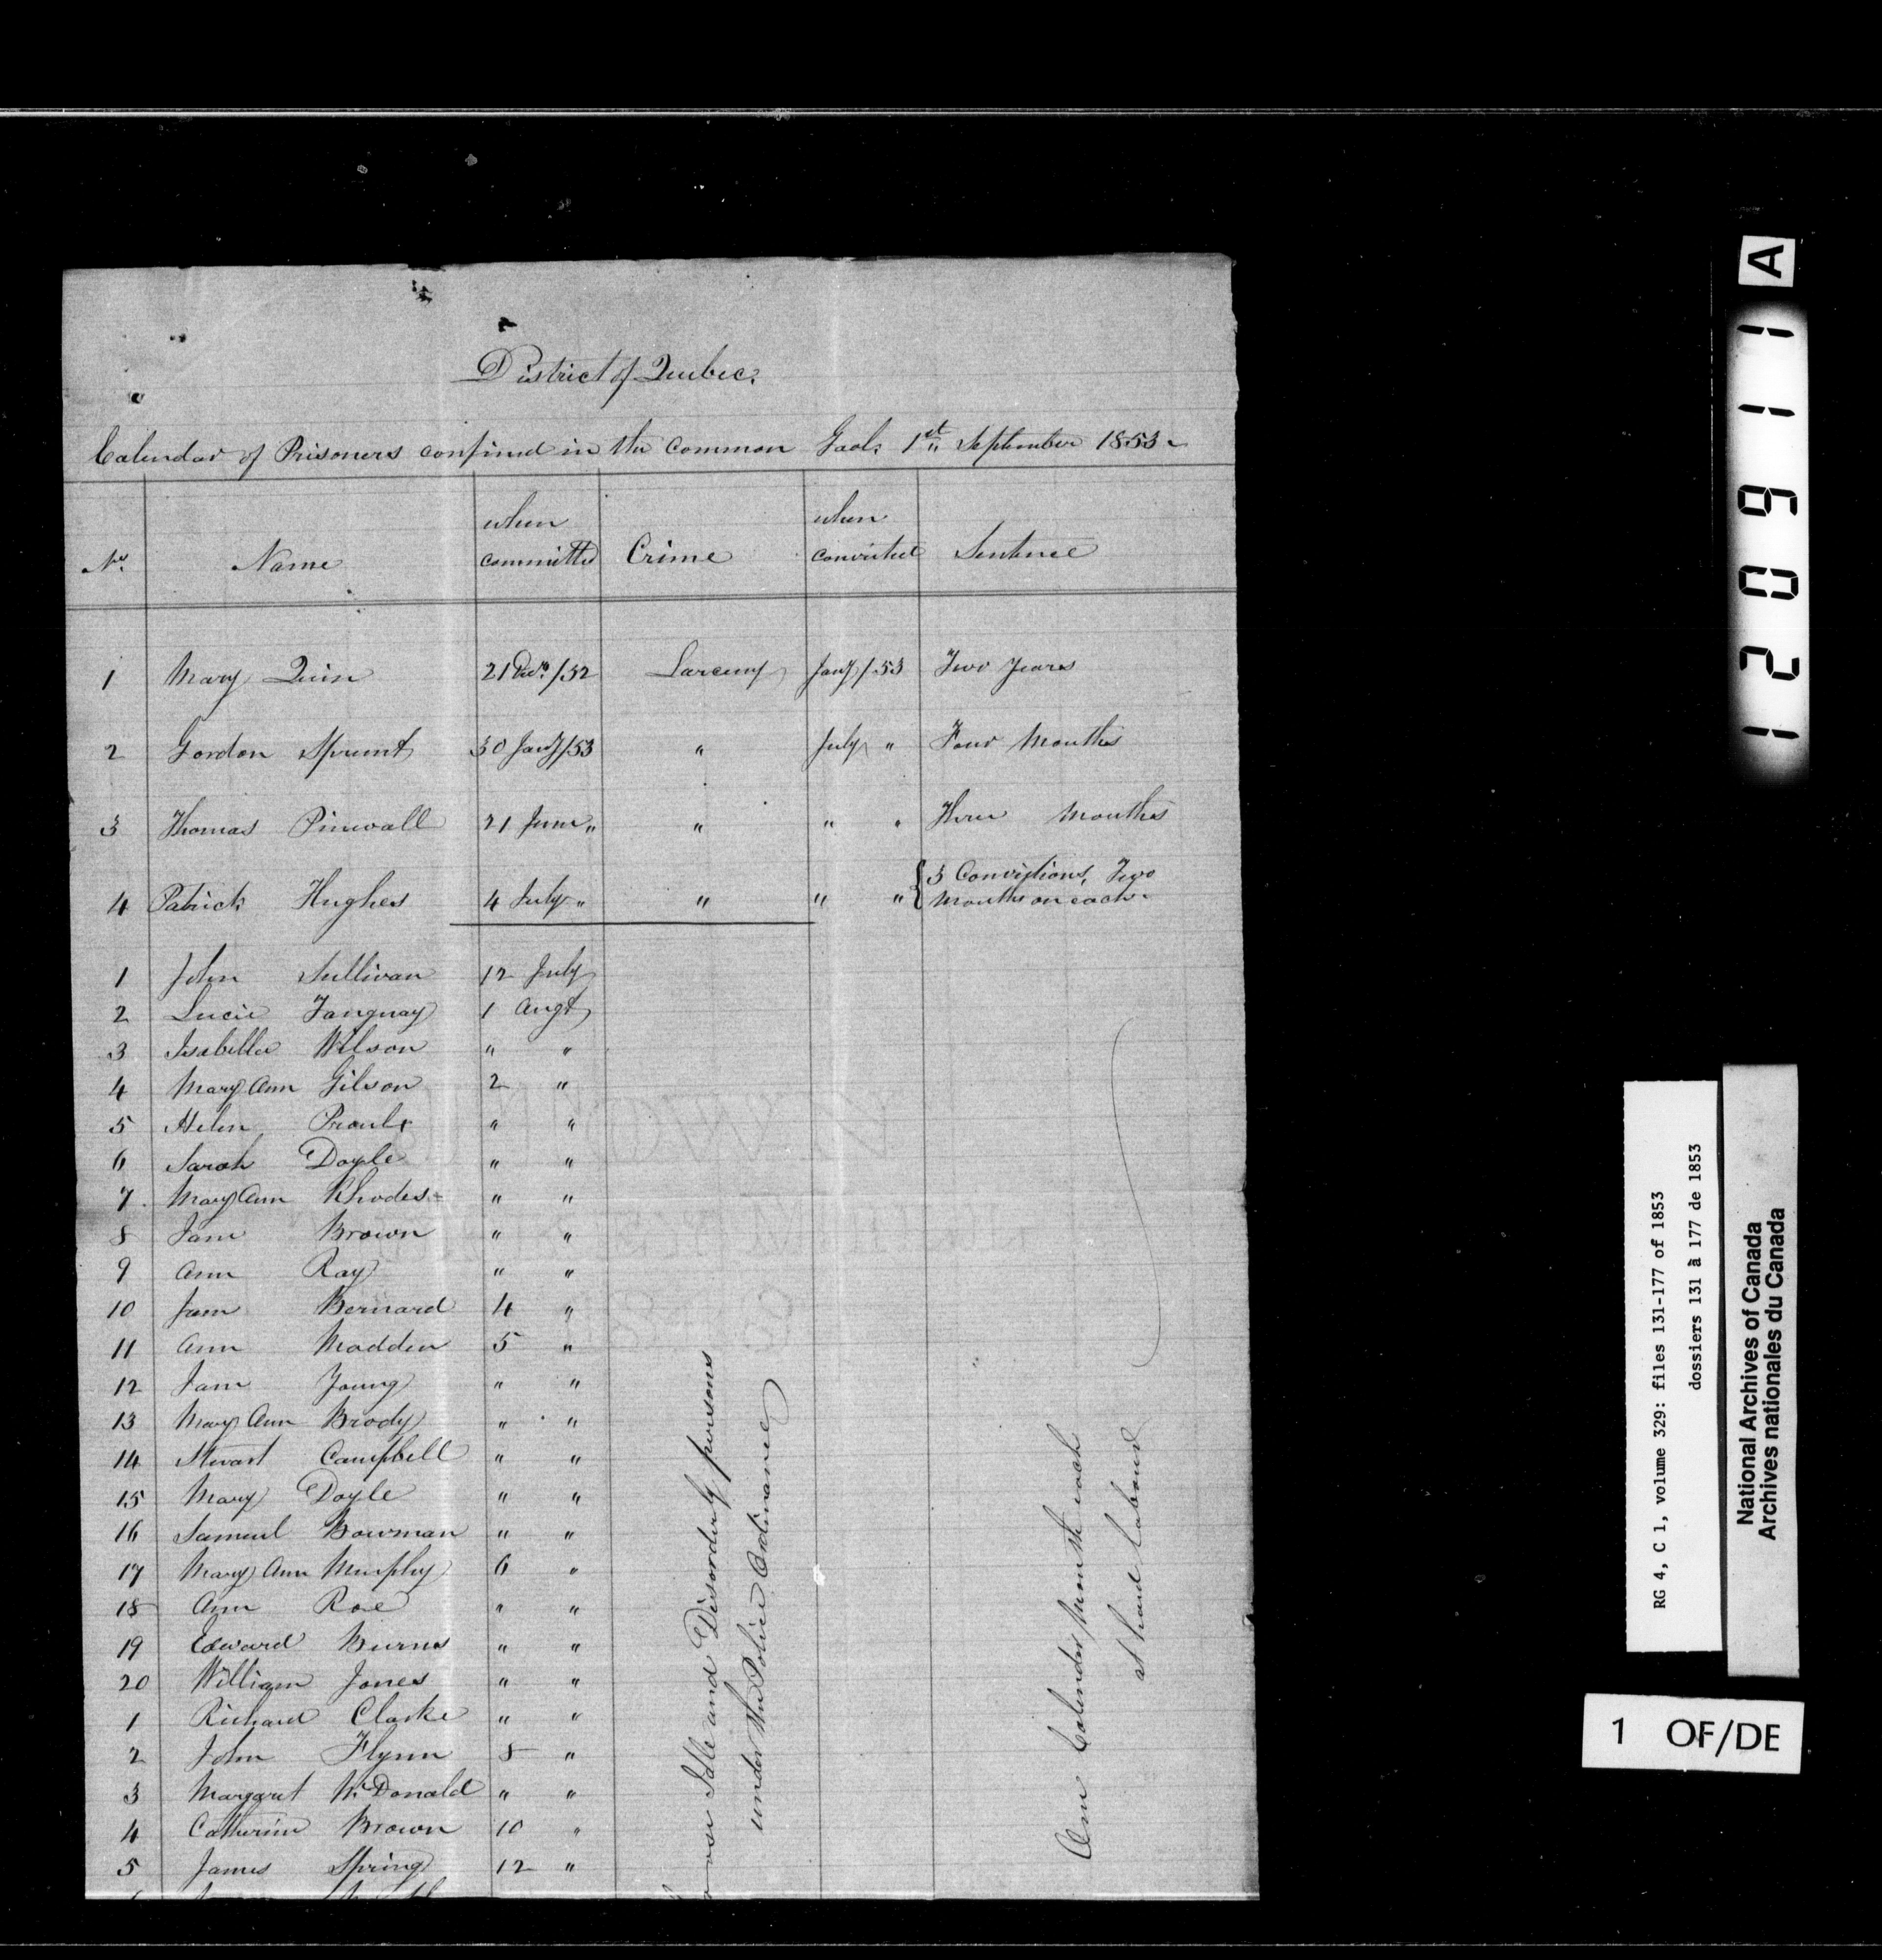 District of Quebec.
Calendar of Prisoners confined in the Common Gaol. 1st September 1853
No. Name when committed Crime when convicted Sentence
1 Mary Quin 21 Decr. /52 Larceny Jany / 53 Two years
2 Gordon Sprunt 30 Jany /53 " July " Four Months
3 Thomas Pinwall 21 June " " " " Three Months
4 Patrick Hughes 4 July " " " " { 3 Convictions, Two
Months on each
1 John Sullivan 12 July
2 Lucie Tanguay 1 Augt
3 Isabella Wilson " "
4 Mary Ann Gilson 2 "
5 Helen Proulx " "
6 Sarah Doyle " "
7. Mary Ann Rhodes " "
8 Jane Brown " "
9 Ann Ray " "
10 Jane Bernard 4 "
11 Ann Madden 5 "
12 Jane Young " "
13 Mary Ann Brody " "
14 Stewart Campbell " "
15 Mary Doyle " "
16 Samuel Bowman " "
17 Mary Ann Murphy 6 "
18 Ann Roe " "
19 Edward Burns " "
20 William Jones " "
1 Richard Clarke " "
2 John Flynn 8 "
3 Margaret McDonald " "
4 Catherine Brown 10 "
5 James Spring 12 "
Idle and Disorderly persons
under the Police Ordinance
One Calendar Month each
at hard labour
A
120911
RG 4, C 1, volume 329: files 131-177 of 1853
dossiers 131 à 177 de 1853
National Archives of Canada
Archives nationales du Canada
1 OF/DE